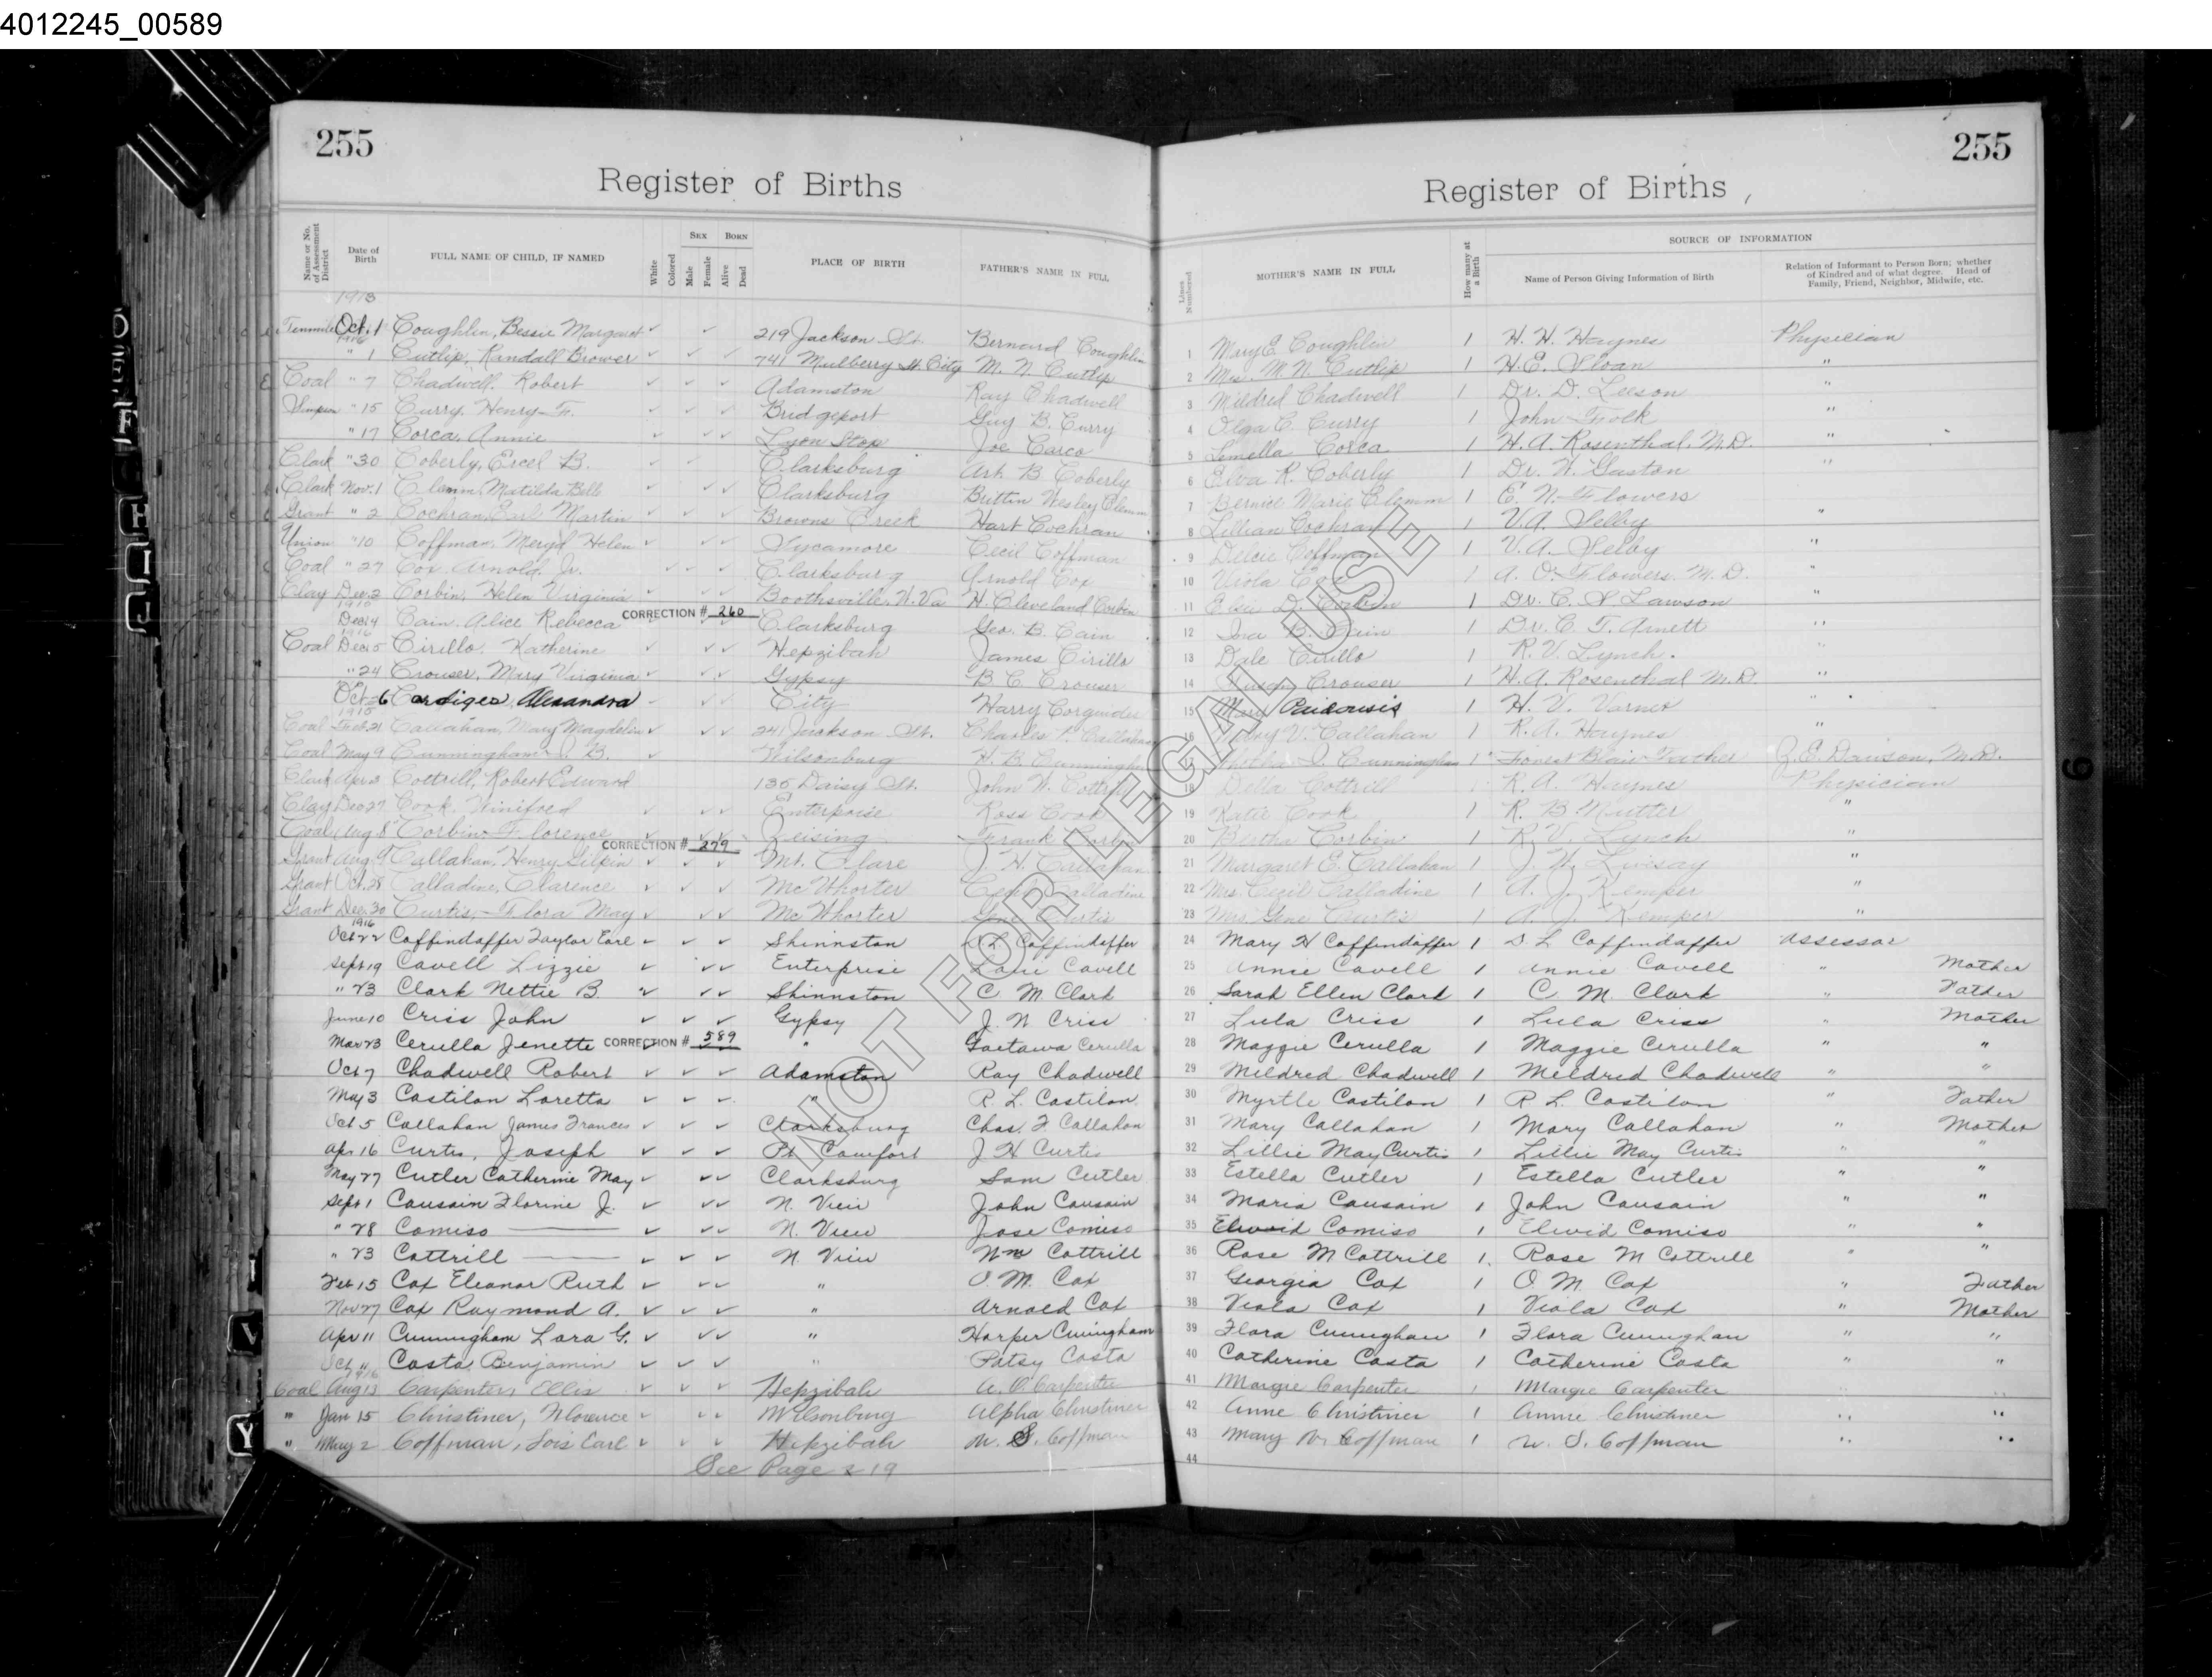 4012245_00589
255
Register of Births
Name or No. of Assessment District
Date of Birth
FULL NAME OF CHILD, IF NAMED
White
Colored
SEX
Male
Female
BORN
Alive
Dead
PLACE OF BIRTH
FATHER'S NAME IN FULL
1913
Oct. 1 Coughlin, Bessie Margaret ✓ ✓ 219 Jackson St. Bernard Coughlin
1916
" 1 Cutlip, Randall Brower ✓ ✓ ✓ 741 Mulberry St. City M. N. Cutlip
Coal " 7 Chadwell, Robert ✓ ✓ ✓ Adamston Ray Chadwell
Simpson " 15 Curry, Henry ✓ ✓ ✓ Bridgeport Guy B. Curry
" 17 Corca, Annie ✓ ✓ ✓ Lyon Stop Joe Carco
Clark " 30 Coberly, Ercel B. ✓ ✓ Clarksburg Art. B Coberly
Clark Nov. 1 Clemm, Matilda Bell ✓ ✓ ✓ Clarksburg Brittin Wesley Clemm
Grant " 2 Cochran, Earl Martin ✓ ✓ ✓ Browns Creek Hart Cochran
Union " 10 Coffman, Helen ✓ ✓ ✓ Sycamore Cecil Coffman
Coal " 27 Cox, Arnold, Jr. ✓ ✓ ✓ Clarksburg Arnold Cox
Clay Dec. 2 Corbin, Helen Virginia ✓ ✓ ✓ Boothsville, W. Va H. Cleveland Corbin
Dec 14 Cain, Alice Rebecca CORRECTION # 260 Clarksburg Geo. B. Cain
1916
Coal Dec 15 Cirillo, Katherine ✓ ✓ ✓ Hepzibah James Cirillo
" 24 Crouser, Mary Virginia ✓ ✓ ✓ Gypsy B. C. Crouser
Oct 26 Alexandra ✓ ✓ City Harry
Coal Feb. 21 Callahan, Mary Magdelen ✓ ✓ ✓ 241 Jackson St. Charles F. Callahan
Coal May 9 Cunningham J. B. ✓ Wilsonburg H. B. Cunningham
Clark Apr 3 Cottrill, Robert Edward 135 Daisy St. John W. Cottrill
Clay Dec 27 Cook, Winifred ✓ ✓ ✓ Enterprise Ross Cook
Coal Aug 8 Corbin, Florence ✓ ✓ ✓ Zeising Frank Corbin
CORRECTION # 279
Grant Aug 9 Callahan, Henry Gilpin ✓ ✓ ✓ Mt. Clare J. H. Callahan
Grant Oct. 28 Calladine, Clarence ✓ ✓ ✓ McWhorter Cecil Calladine
Grant Dec. 30 Curtis, Flora May ✓ ✓ ✓ McWhorter Gene Curtis
1916
Oct 22 Coffindaffer Taylor Earl ✓ ✓ ✓ Shinnston D L Coffindaffer
Sept 19 Cavell Lizzie ✓ ✓ ✓ Enterprise Cavell
" 23 Clark Nettie B. ✓ ✓ ✓ Shinnston C M Clark
June 10 Criss John ✓ ✓ ✓ Gypsy J. N Criss
Mar 23 Cerulla Jenette CORRECTION # 589 " Gaetawa Cerulla
Oct 7 Chadwell Robert ✓ ✓ ✓ Adamston Ray Chadwell
May 3 Castilon Loretta ✓ ✓ ✓ " R. L. Castilon
Oct 5 Callahan James Frances ✓ ✓ ✓ Clarksburg Chas. F Callahan
Apr 16 Curtis, Joseph ✓ ✓ ✓ Pt Comfort J H Curtis
May 27 Cutler Catherine May ✓ ✓ ✓ Clarksburg Sam Cutler
Sept 1 Causain Florine J. ✓ ✓ ✓ N. View John Causain
" 28 Comiso ✓ ✓ ✓ N. View Jose Comiso
" 23 Cottrill ✓ ✓ ✓ N. View Wm Cottrill
Feb 15 Cox Eleanor Ruth ✓ ✓ ✓ " O. M. Cox
Nov 27 Cox Raymond A. ✓ ✓ ✓ " Arnold Cox
Apr 11 Cuningham Lora G. ✓ ✓ ✓ " Harper Cuningham
Oct 11 Costa Benjamin ✓ ✓ ✓ " Patsy Costa
1916
Coal Aug 13 Carpenter, Ellis ✓ ✓ ✓ Hepzibah A. O. Carpenter
" Jan 15 Christiner, Florence ✓ ✓ ✓ Wilsonburg Alpha Christiner
" May 2 Coffman, Lois Earl ✓ ✓ ✓ Hepzibah W. S. Coffman
See Page 219
255
Register of Births
Lines Numbered
MOTHER'S NAME IN FULL
How many at a Birth
SOURCE OF INFORMATION
Name of Person Giving Information of Birth
Relation of Informant to Person Born; whether of Kindred and of what degree. Head of Family, Friend, Neighbor, Midwife, etc.
1 Mary E. Coughlin 1 H. H. Haynes Physician
2 Mrs. M. N. Cutlip 1 H. E. Sloan "
3 Mildred Chadwell 1 Dr. D. Leeson "
4 Olga C. Curry 1 John Folk "
5 Corca 1 H. A. Rosenthal, M.D. "
6 Elva R. Coberly 1 Dr. W. Gaston "
7 Bernice Marie Clemm 1 E. N. Flowers
8 Lillian Cochran 1 V. A. Selby "
9 Delcie Coffman 1 V. A. Selby "
10 Viola Cox 1 A. O. Flowers, M.D. "
11 Elsie D. Corbin 1 Dr. C. S Lawson "
12 Ina B. Cain 1 Dr. C. T. Arnett "
13 Dale Cirillo 1 R. V. Lynch. "
14 Susan Crouser 1 H. A. Rosenthal M.D. "
15 Mary 1 H. V. Varner "
16 Mary V. Callahan 1 R. A. Haynes "
Cunningham 1 Forest Blair Father Z. E. Dawson, M.D.
18 Della Cottrill R. A. Haynes Physician
19 Katie Cook 1 R. B. Nutter "
20 Bertha Corbin 1 R. V. Lynch "
21 Margaret E. Callahan 1 J. W. Livesay "
22 Mrs. Cecil Calladine 1 A. J. Kemper "
23 Mrs. Gene Curtis 1 A. J. Kemper "
24 Mary H Coffindaffer 1 D. L Coffindaffer Assessor
25 Annie Cavell 1 Annie Cavell " Mother
26 Sarah Ellen Clark 1 C M. Clark " Father
27 Lula Criss 1 Lula Criss " Mother
28 Maggie Cerulla 1 Maggie Cerulla " "
29 Mildred Chadwell 1 Mildred Chadwell " "
30 Myrtle Castilon 1 R L. Castilon " Father
31 Mary Callahan 1 Mary Callahan " Mother
32 Lillie May Curtis 1 Lillie May Curtis " "
33 Estella Cutler 1 Estella Cutler " "
34 Maria Causain 1 John Causain " "
35 Elwid Comiso 1 Elwid Comiso " "
36 Rose M Cottrill 1 Rose M Cottrill " "
37 Georgia Cox 1 O M. Cox " Father
38 Viola Cox 1 Viola Cox " Mother
39 Flora Cuningham 1 Flora Cuningham " "
40 Catherine Costa 1 Catherine Costa " "
41 Margie Carpenter 1 Margie Carpenter " "
42 Anne Christiner 1 Annie Christiner " "
43 Mary W. Coffman 1 W. S. Coffman " "
44
NOT FOR LEGAL USE